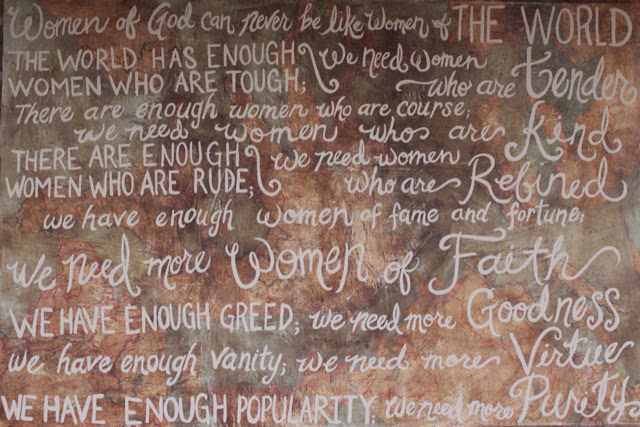 Women of God can never be like women of THE WORLD
THE WORLD HAS ENOUGH We need women
WOMEN WHO ARE TOUGH; who are tender
There are enough women who are course;
we need women who are Kind
THERE ARE ENOUGH we need women
WOMEN WHO ARE RUDE; who are Refined
we have enough women of fame and fortune;
we need more women of Faith
WE HAVE ENOUGH GREED; we need more Goodness
we have enough vanity; we need more Virtue
WE HAVE ENOUGH POPULARITY; we need more Purity